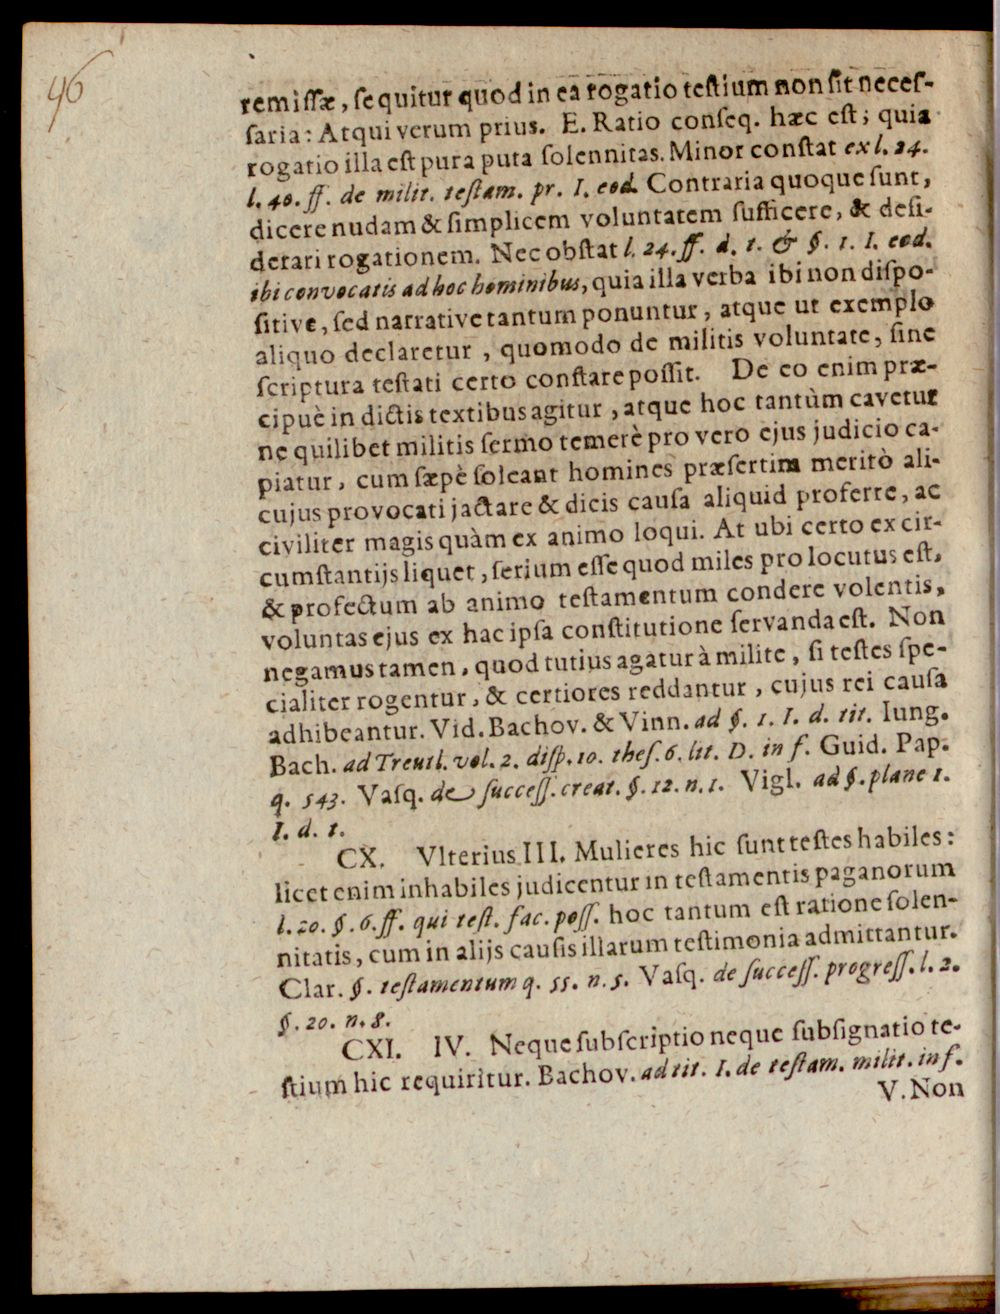 46
remissæ, sequitur quod in ea rogatio testium non sit neces-
saria: Atqui verum prius. E. Ratio conseq. hæc est; quia
rogatio illa est pura puta solennitas. Minor constat ex l. 24.
l. 40. ff. de milit. testam. pr. I. eod. Contraria quoque sunt,
dicere nudam & simplicem voluntatem sufficere, & desi-
derari rogationem. Nec obstat l. 24. ff. d. t. & §. 1. I. eod.
ibi convocatis ad hoc hominibus, quia illa verba ibi non dispo-
sitive, sed narrative tantum ponuntur, atque ut exemplo
aliquo declaretur, quomodo de militis voluntate, sine
scriptura testati certo constare possit. De eo enim præ-
cipuè in dictis textibus agitur, atque hoc tantùm cavetur
ne quilibet militis sermo temerè pro vero ejus judicio ca-
piatur, cum sæpè soleant homines præsertim meritò ali-
cujus provocati jactare & dicis causa aliquid proferre, ac
civiliter magis quàm ex animo loqui. At ubi certo ex cir-
cumstantijs liquet, serium esse quod miles prolocutus est,
& profectum ab animo testamentum condere volentis,
voluntas ejus ex hac ipsa constitutione servanda est. Non
negamus tamen, quod tutius agatur à milite, si testes spe-
cialiter rogentur, & certiores reddantur, cujus rei causa
adhibeantur. Vid. Bachov. & Vinn. ad §. 1. I. d. tit. Iung.
Bach. ad Treutl. vol. 2. disp. 10. thes. 6. lit. D. in f. Guid. Pap.
q. 543. Vasq. de success. creat. §. 12. n. 1. Vigl. ad §. plane 1.
I. d. t.
CX. Vlterius III. Mulieres hic sunt testes habiles:
licet enim inhabiles judicentur in testamentis paganorum
l. 20. §. 6. ff. qui test. fac. poss. hoc tantum est ratione solen-
nitatis, cum in alijs causis illarum testimonia admittantur.
Clar. §. testamentum q. 55. n. 5. Vasq. de success. progress. l. 2.
§. 20. n. 8.
CXI. IV. Neque subscriptio neque subsignatio te-
stium hic requiritur. Bachov. ad tit. I. de testam. milit. in f.
V. Non